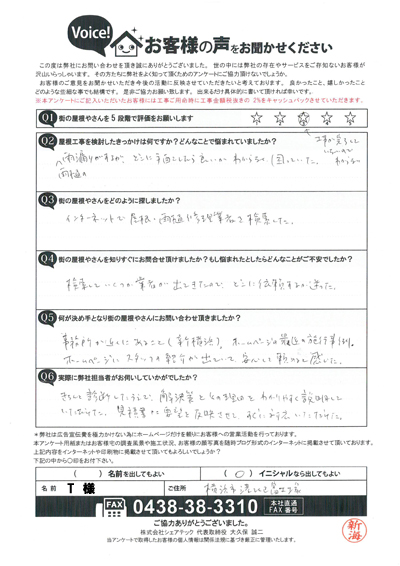 Voice!
お客様の声をお聞かせください
この度は弊社にお問い合わせを頂き誠にありがとうございます。世の中には弊社の存在やサービスをご存知ないお客様が
沢山いらっしゃいます。その方たちに弊社をよく知って頂くためのアンケートにご協力頂けないでしょうか。
お客様のご意見をお聞かせいただき今後の活動に反映させていただきたいと考えております。良かったこと、嬉しかったこと
どのような些細な事でも結構です。是非ご協力お願い致します。出来るだけ具体的に書いて頂ければ幸いです。
※本アンケートにご記入いただいたお客様には工事ご用命時に工事金額税抜きの 2%をキャッシュバックさせていただきます。
Q1 街の屋根やさんを5段階で評価をお願いします ☆ ☆ ☆ ☆ ☆
Q2 屋根工事を検討したきっかけは何ですか?どんなことで悩まれていましたか?
工事が完了して
いないので
わからない
雨漏りがするが、どこに相談したら良いかわからない、困っていた。
Q3 街の屋根やさんをどのように探しましたか?
インターネットで屋根、雨樋の修理業者を検索した。
Q4 街の屋根やさんを知りすぐにお問合せ頂けましたか?もし悩まれたとしたらどんなことがご不安でしたか?
検索していくつか業者が出てきたので、どこに依頼するか迷った。
Q5 何が決め手となり街の屋根やさんにお問い合わせ頂きましたか?
事務所が近くにあること(新横浜)。ホームページの最近の施行事例。
ホームページにスタッフの紹介が出ていて安心して頼めると感じた。
Q6 実際に弊社担当者がお伺いしていかがでしたか?
きちんと診断したうえで、解決策とその理由をわかりやすく説明して
いただけた。見積書に要望を反映させて、
* 弊社は広告宣伝費を極力かけない為にホームページだけを頼りにお客様への営業活動を行っております。
本アンケート用紙またはお客様宅の調査風景や施工状況、お客様の顔写真を随時ブログ形式のインターネットに掲載させて頂いております。
上記内容をインターネットや印刷物に掲載させて頂いてもよろしいでしょうか?
下記の中から○印をお付け下さい。
( ) 名前を出してもよい
( ○ ) イニシャルなら出してもよい
名前 T 様
ご住所 横浜市
FAX 0438-38-3310 本社直通 FAX番号
ご協力ありがとうございました。
株式会社シェアテック 代表取締役 大久保 誠二
当アンケートで取得したお客様の個人情報は関係法規に基づき厳正に管理いたします。
新海